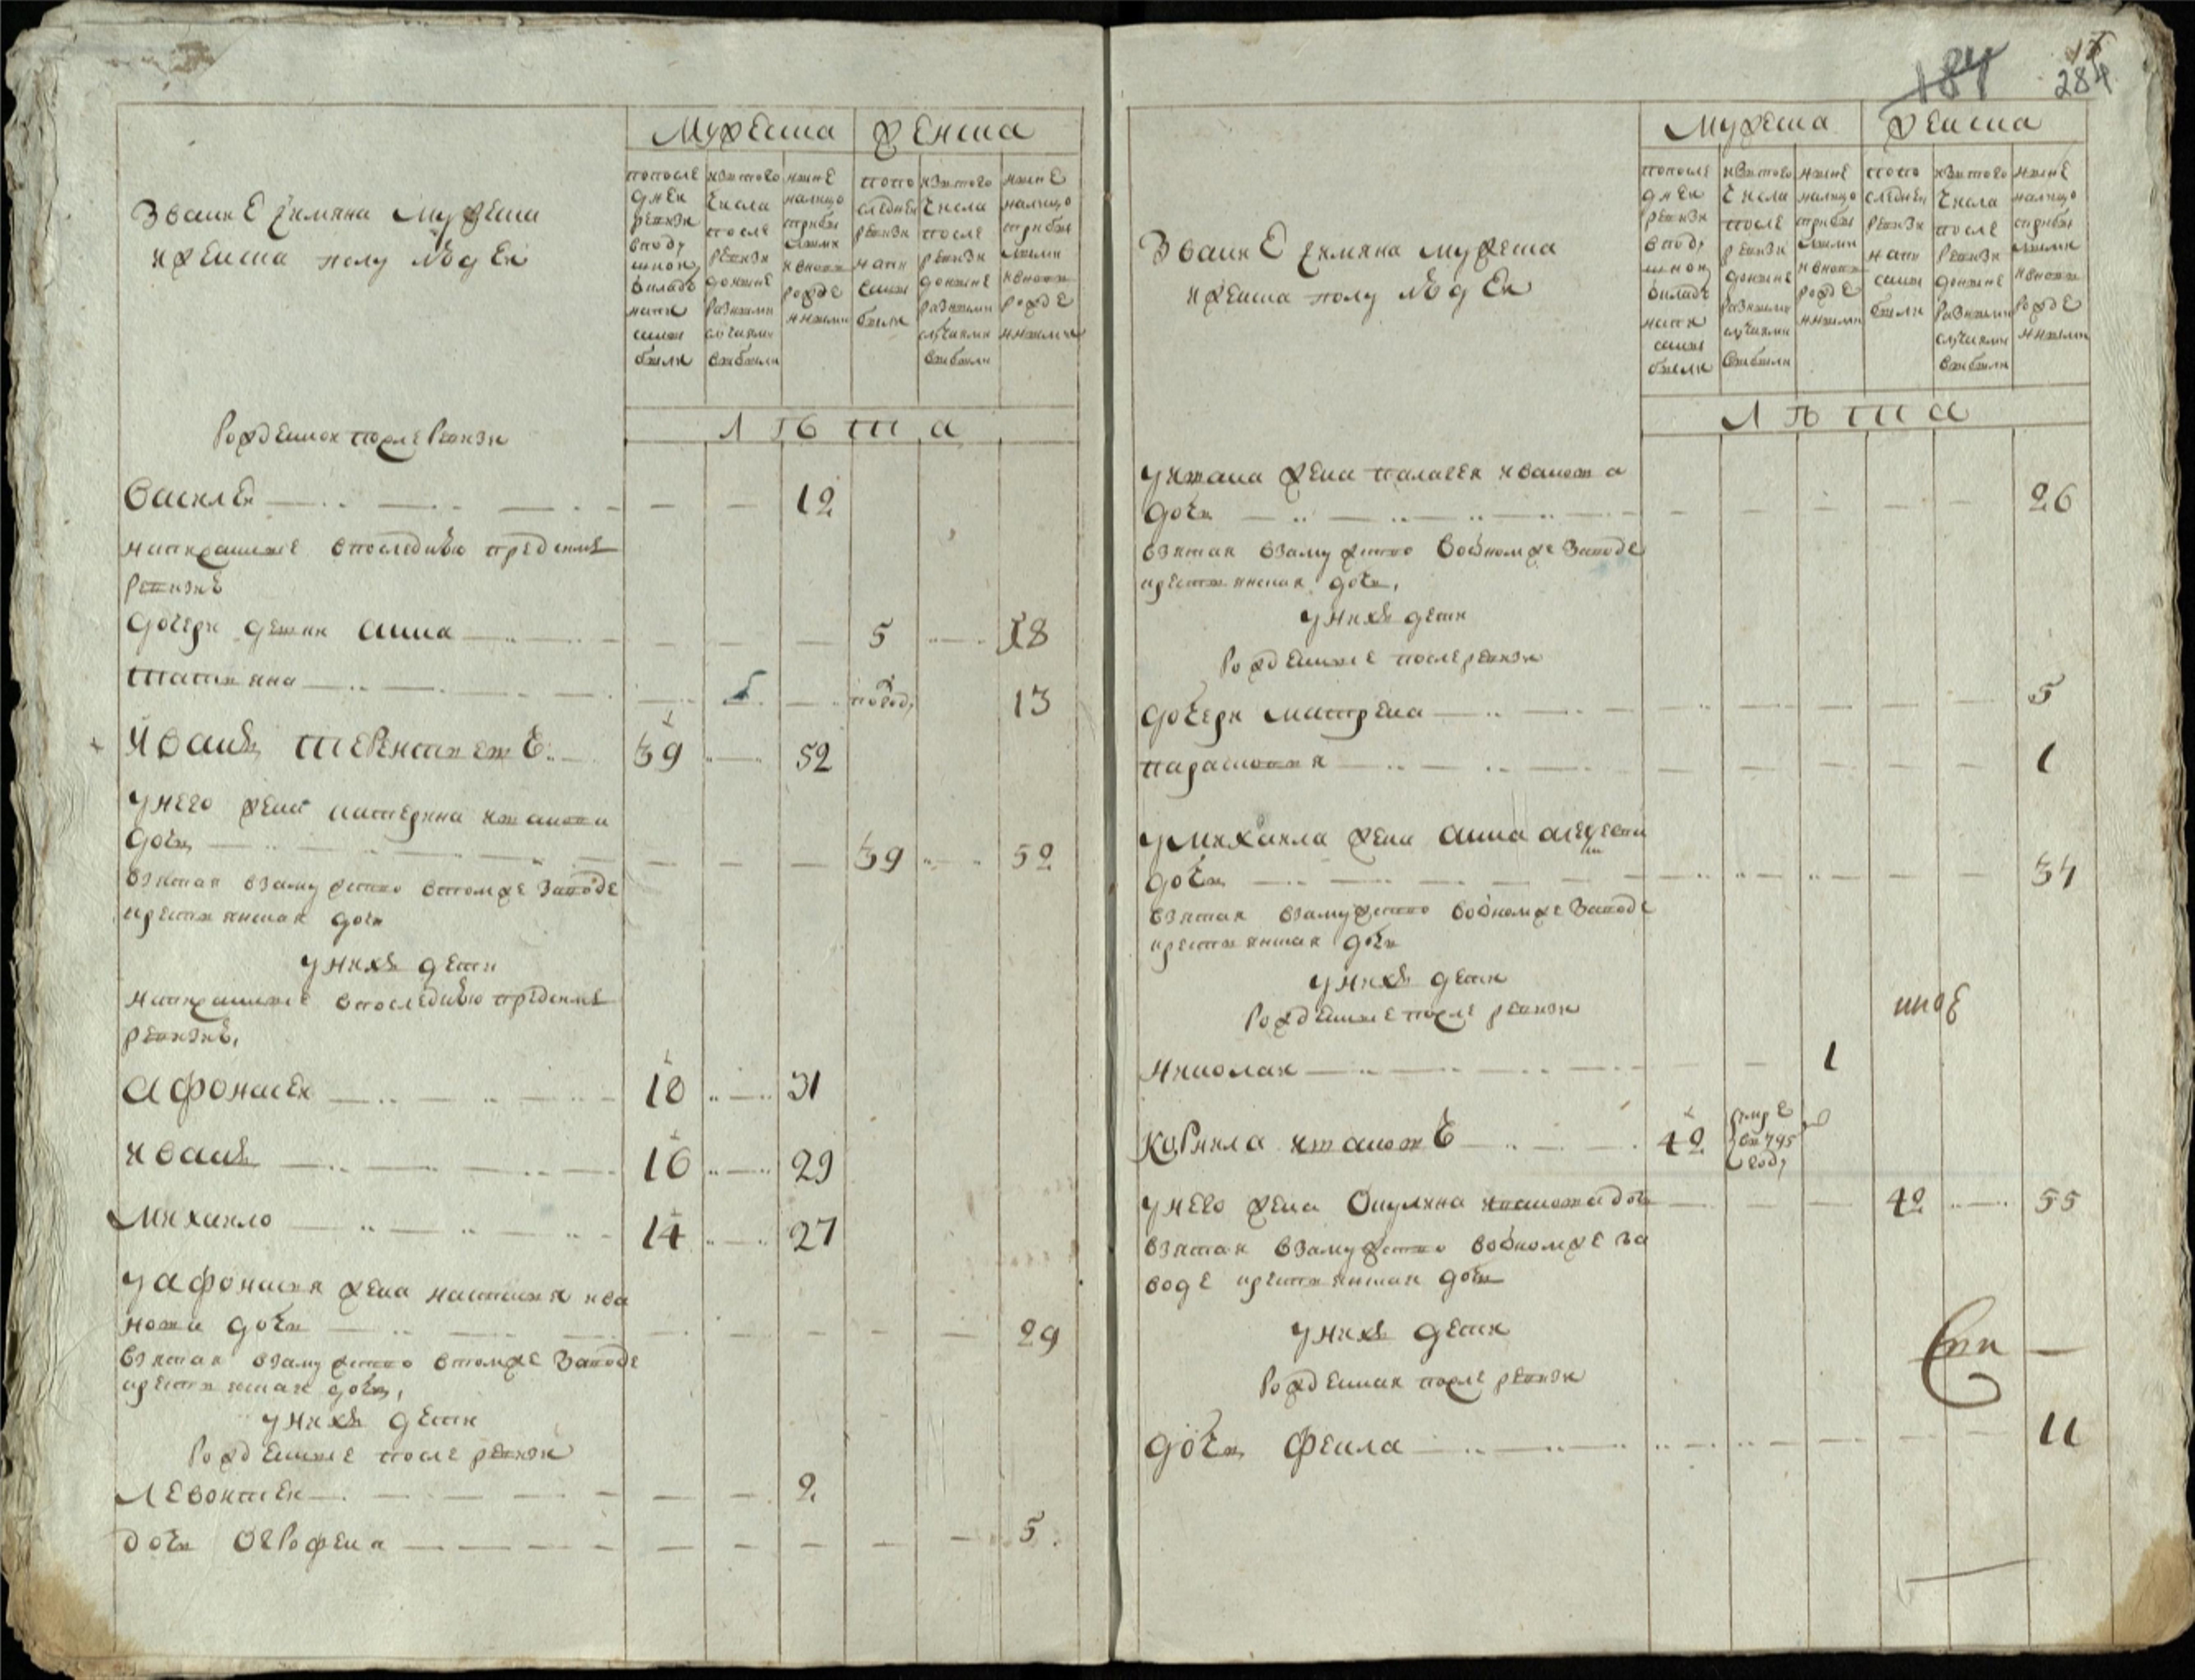 Звание и имяна мужеска
и женска полу людей
Мужеска
Женска
попосле
дней
ревизи
вподу
шном
окладе
напи
саны
были
изтого
числа
после
ревизи
доныне
разными
случаями
выбыли
ныне
налицо
сприбы
лыми
ивновь
рожде
нными
попо
следней
ревизи
напи
саны
были
изтого
числа
после
ревизи
доныне
разными
случаями
выбыли
ныне
налицо
сприбы
лыми
ивновь
рожде
нными
лѣта
Рожденной после Ревизи
Василей 12
написанные впоследнюю пред сим
ревизию
дочери девки анна 5 18
татьяна полгоду 13
Иванъ терентьевъ 39 52
унего жена катерина
дочь 39 52
взятая взамужство втомже заводе
крестьянская дочь
унихъ дети
написанные впоследнюю пред сим
ревизию
афонасей 18 31
иванъ 16 29
михайло 14 27
уафонасья жена настасья ива
нова дочь 29
взятая взамужство втомже заводе
крестьянская дочь
унихъ дети
Рожденные после ревизи
левонтей 2
дочь огрофена 5
184
284
Звание и имяна мужеска
и женска полу людей
Мужеска
Женска
попосле
дней
ревизи
вподу
шном
окладе
напи
саны
были
изтого
числа
после
ревизи
доныне
разными
случаями
выбыли
ныне
налицо
сприбы
лыми
ивновь
рожде
нными
попо
следней
ревизи
напи
саны
были
изтого
числа
после
ревизи
доныне
разными
случаями
выбыли
ныне
налицо
сприбы
лыми
ивновь
рожде
нными
лѣта
уивана жена палагея иванова
дочь 26
взятая взамужство воономже заводе
крестьянская дочь
унихъ дети
Рожденные после ревизи
дочери матрена 5
парасковья 1
умихаила жена анна
дочь 34
взятая взамужство воономже заводе
крестьянская дочь
унихъ дети
Рожденные после ревизи
николай 1
корнила ивановъ 42 умре
въ 795
году
унего жена Окулина ивановa дочь 42 55
взятая взамужство воономже за
воде крестьянская дочь
унихъ дети
Рожденная после ревизи
дочь фекла 11